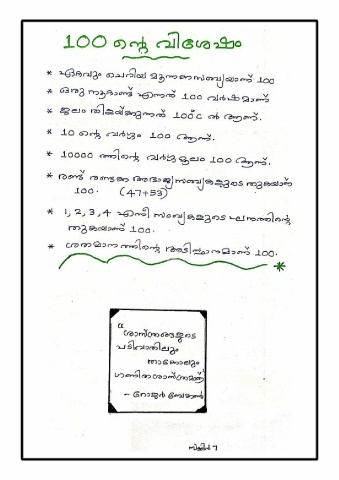 100 ന്റെ വിശേഷം
* ഏറ്റവും ചെറിയ മൂന്നക്കസംഖ്യയാണ് 100
* ഒരു നൂറ്റാണ്ട് എന്നത് 100 വർഷമാണ്
* ജലം തിളയ്ക്കുന്നത് 100°C ൽ ആണ്.
* 10 ന്റെ വർഗ്ഗം 100 ആണ്.
* 10000 ത്തിന്റെ വർഗ്ഗമൂലം 100 ആണ്.
* രണ്ട് രണ്ടക്ക അഭാജ്യസംഖ്യകളുടെ തുകയാണ്
100. (47+53)
* 1, 2, 3, 4 എന്നീ സംഖ്യകളുടെ ഘനത്തിന്റെ
തുകയാണ് 100.
* ശതമാനത്തിന്റെ അടിസ്ഥാനമാണ് 100.
“ശാസ്ത്രങ്ങളുടെ
പടിവാതിലും
താക്കോലും
ഗണിതശാസ്ത്രമത്രെ”
- റോജർ ബേക്കൺ